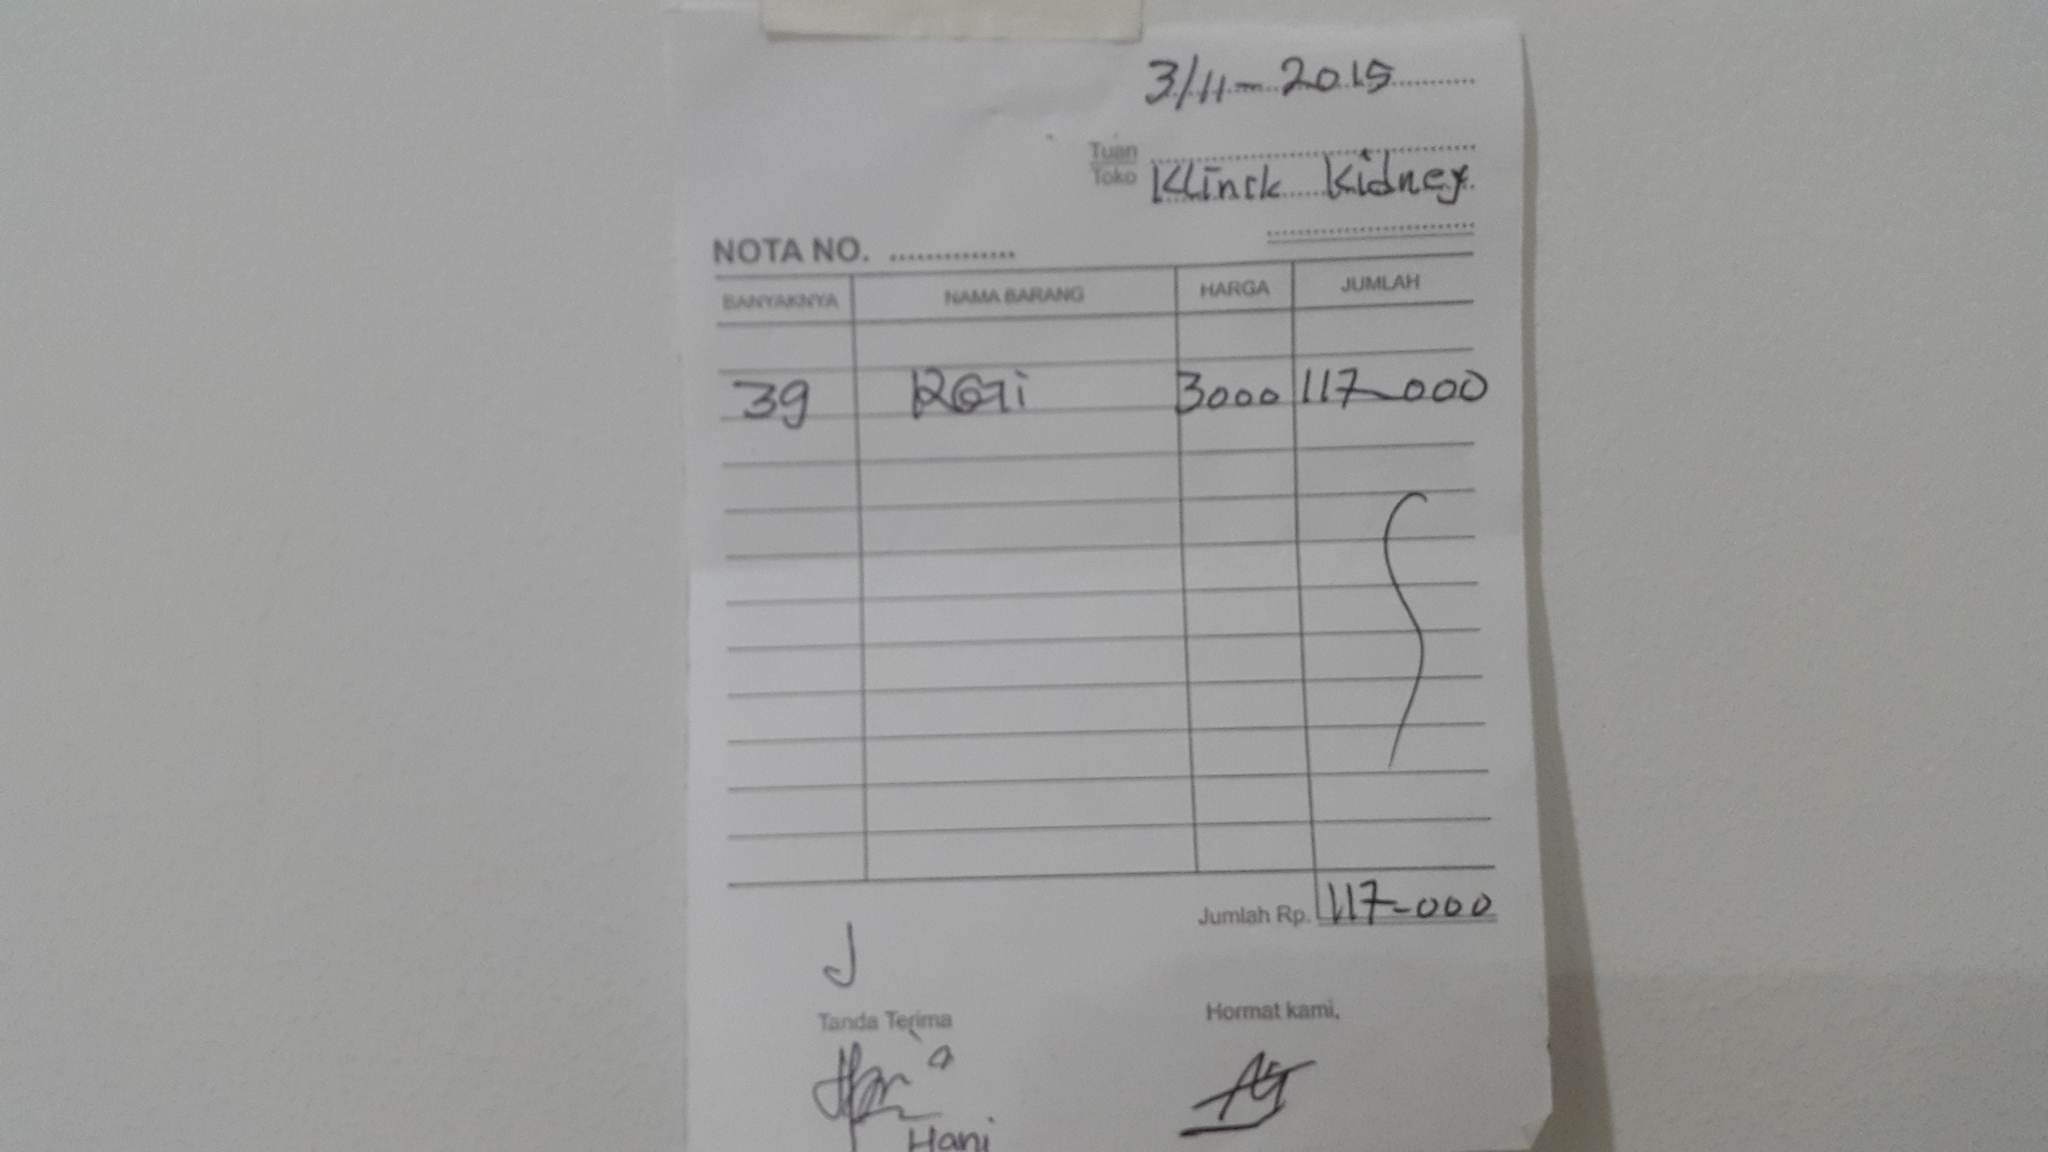 3/11-2015
Tuan
Toko Klinik Kidney
NOTA NO. ..............
BANYAKNYA NAMA BARANG HARGA JUMLAH
39 Roti 3000 117-000
Jumlah Rp. 117-000
Tanda Terima Hormat kami,
Hani